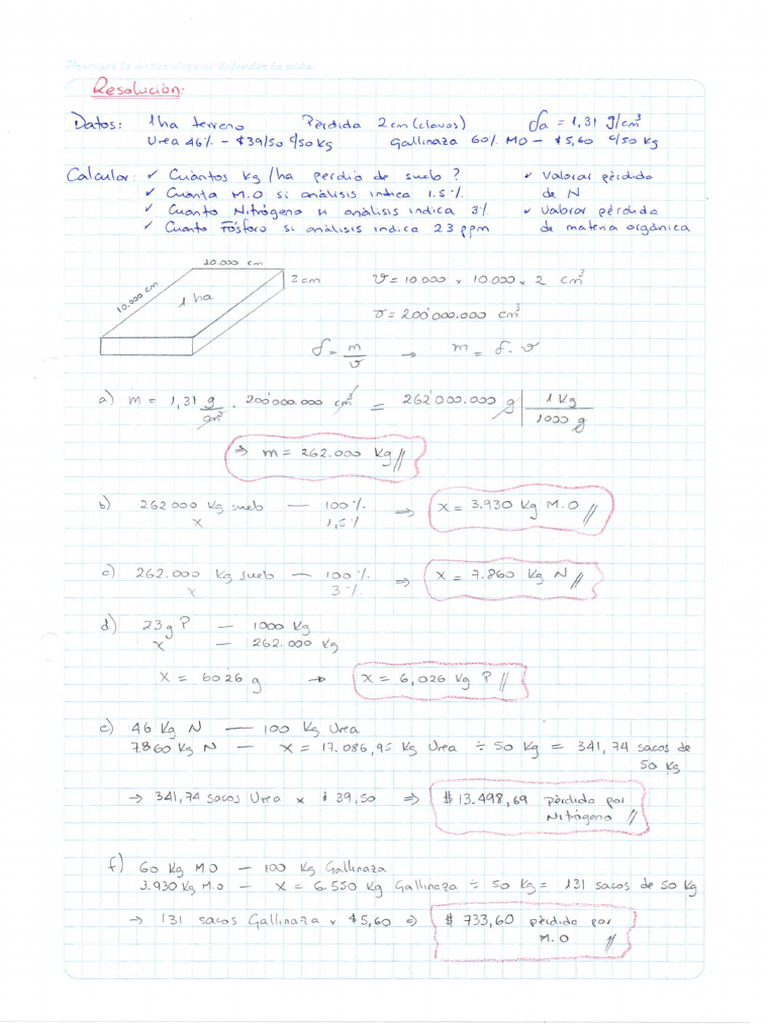 Proteger la naturaleza es defender la vida
Resolución:
Datos: 1 ha terreno Pèrdida 2 cm (clavos) δa = 1,31 g/cm³
Urea 46% - $39/50 c/50 Kg Gallinaza 60% MO - $5,60 c/50 Kg
Calcular: ✓ Cuántos Kg/ha perdió de suelo? ✓ Valorar pèrdida
✓ Cuánta M.O si anàlisis indica 1.5% de N
✓ Cuanto Nitrógeno si anàlisis indica 3% ✓ Valorar pèrdida
✓ Cuanto Fósforo si anàlisis indica 23 ppm de materia orgànica
10.000 cm
2 cm
10.000 cm
1 ha
V = 10.000 × 10.000 × 2 cm³
V = 200'000.000 cm³
δ = m/V → m = δ · V
a) m = 1,31 g/cm³ · 200'000.000 cm³ = 262'000.000 g | 1 Kg / 1000 g
⇒ m = 262.000 Kg //
b) 262000 Kg suelo — 100% ⇒ X = 3.930 Kg M.O //
x 1,5%
c) 262.000 Kg suelo — 100% ⇒ X = 7.860 Kg N //
x 3%
d) 23 g P — 1000 Kg
x — 262.000 Kg
X = 6026 g → X = 6,026 Kg P //
e) 46 Kg N — 100 Kg Urea
7.860 Kg N — X = 17.086,95 Kg Urea ÷ 50 Kg = 341,74 sacos de
50 Kg
→ 341,74 sacos Urea × $ 39,50 ⇒ $ 13.498,69 pèrdido por
Nitrógeno //
f) 60 Kg M.O — 100 Kg Gallinaza
3.930 Kg M.O — X = 6.550 Kg Gallinaza ÷ 50 Kg = 131 sacos de 50 Kg
→ 131 sacos Gallinaza × $5,60 ⇒ $ 733,60 pèrdido por
M.O //